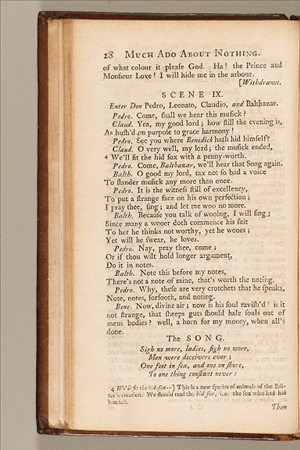 28 MUCH ADO ABOUT NOTHING.
of what colour it pleaſe God. Ha! the Prince and
Monſieur Love! I will hide me in the arbour.
[Withdraws.
SCENE IX.
Enter Don Pedro, Leonato, Claudio, and Balthazar.
Pedro. Come, ſhall we hear this muſick?
Claud. Yea, my good lord; how ſtill the evening is,
As huſh'd on purpoſe to grace harmony!
Pedro. See you where Benedick hath hid himſelf?
Claud. O very well, my lord; the muſick ended,
4 We'll fit the hid fox with a penny-worth.
Pedro. Come, Balthazar, we'll hear that ſong again.
Balth. O good my lord, tax not ſo bad a voice
To ſlander muſick any more than once.
Pedro. It is the witneſs ſtill of excellency,
To put a ſtrange face on his own perfection;
I pray thee, ſing; and let me woo no more.
Balth. Becauſe you talk of wooing, I will ſing;
Since many a wooer doth commence his ſuit
To her he thinks not worthy, yet he wooes;
Yet will he ſwear, he loves.
Pedro. Nay, pray thee, come;
Or if thou wilt hold longer argument,
Do it in notes.
Balth. Note this before my notes,
There's not a note of mine, that's worth the noting.
Pedro. Why, theſe are very crotchets that he ſpeaks,
Note, notes, forſooth, and noting.
Bene. Now, divine air; now is his ſoul raviſh'd! is it
not ſtrange, that ſheeps guts ſhould hale ſouls out of
mens bodies? well, a horn for my money, when all's
done.
The SONG.
Sigh no more, ladies, ſigh no more,
Men were deceivers ever;
One foot in ſea, and one on ſhore,
To one thing conſtant never:
4 We'll fit the hid-fox—] This is a new ſpecies of animals of the Edi-
tor's creation. We ſhould read the hid fox, i. e. the fox who had hid
himſelf.
Then